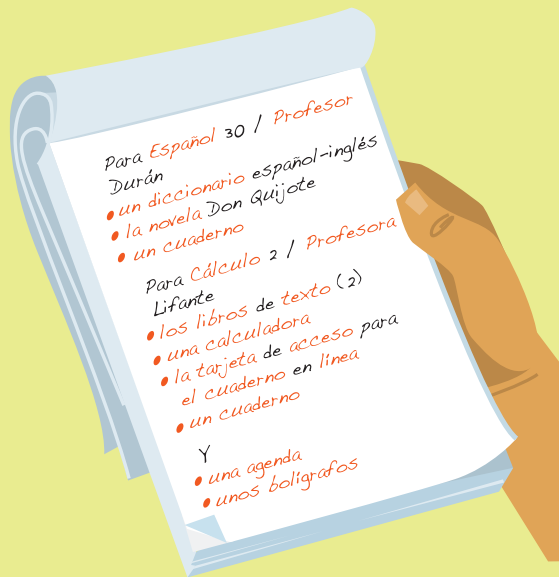 Para Español 30 / Profesor
Durán
• un diccionario español-inglés
• la novela Don Quijote
• un cuaderno
Para Cálculo 2 / Profesora
Lifante
• los libros de texto (2)
• una calculadora
• la tarjeta de acceso para
el cuaderno en línea
• un cuaderno
Y
• una agenda
• unos bolígrafos